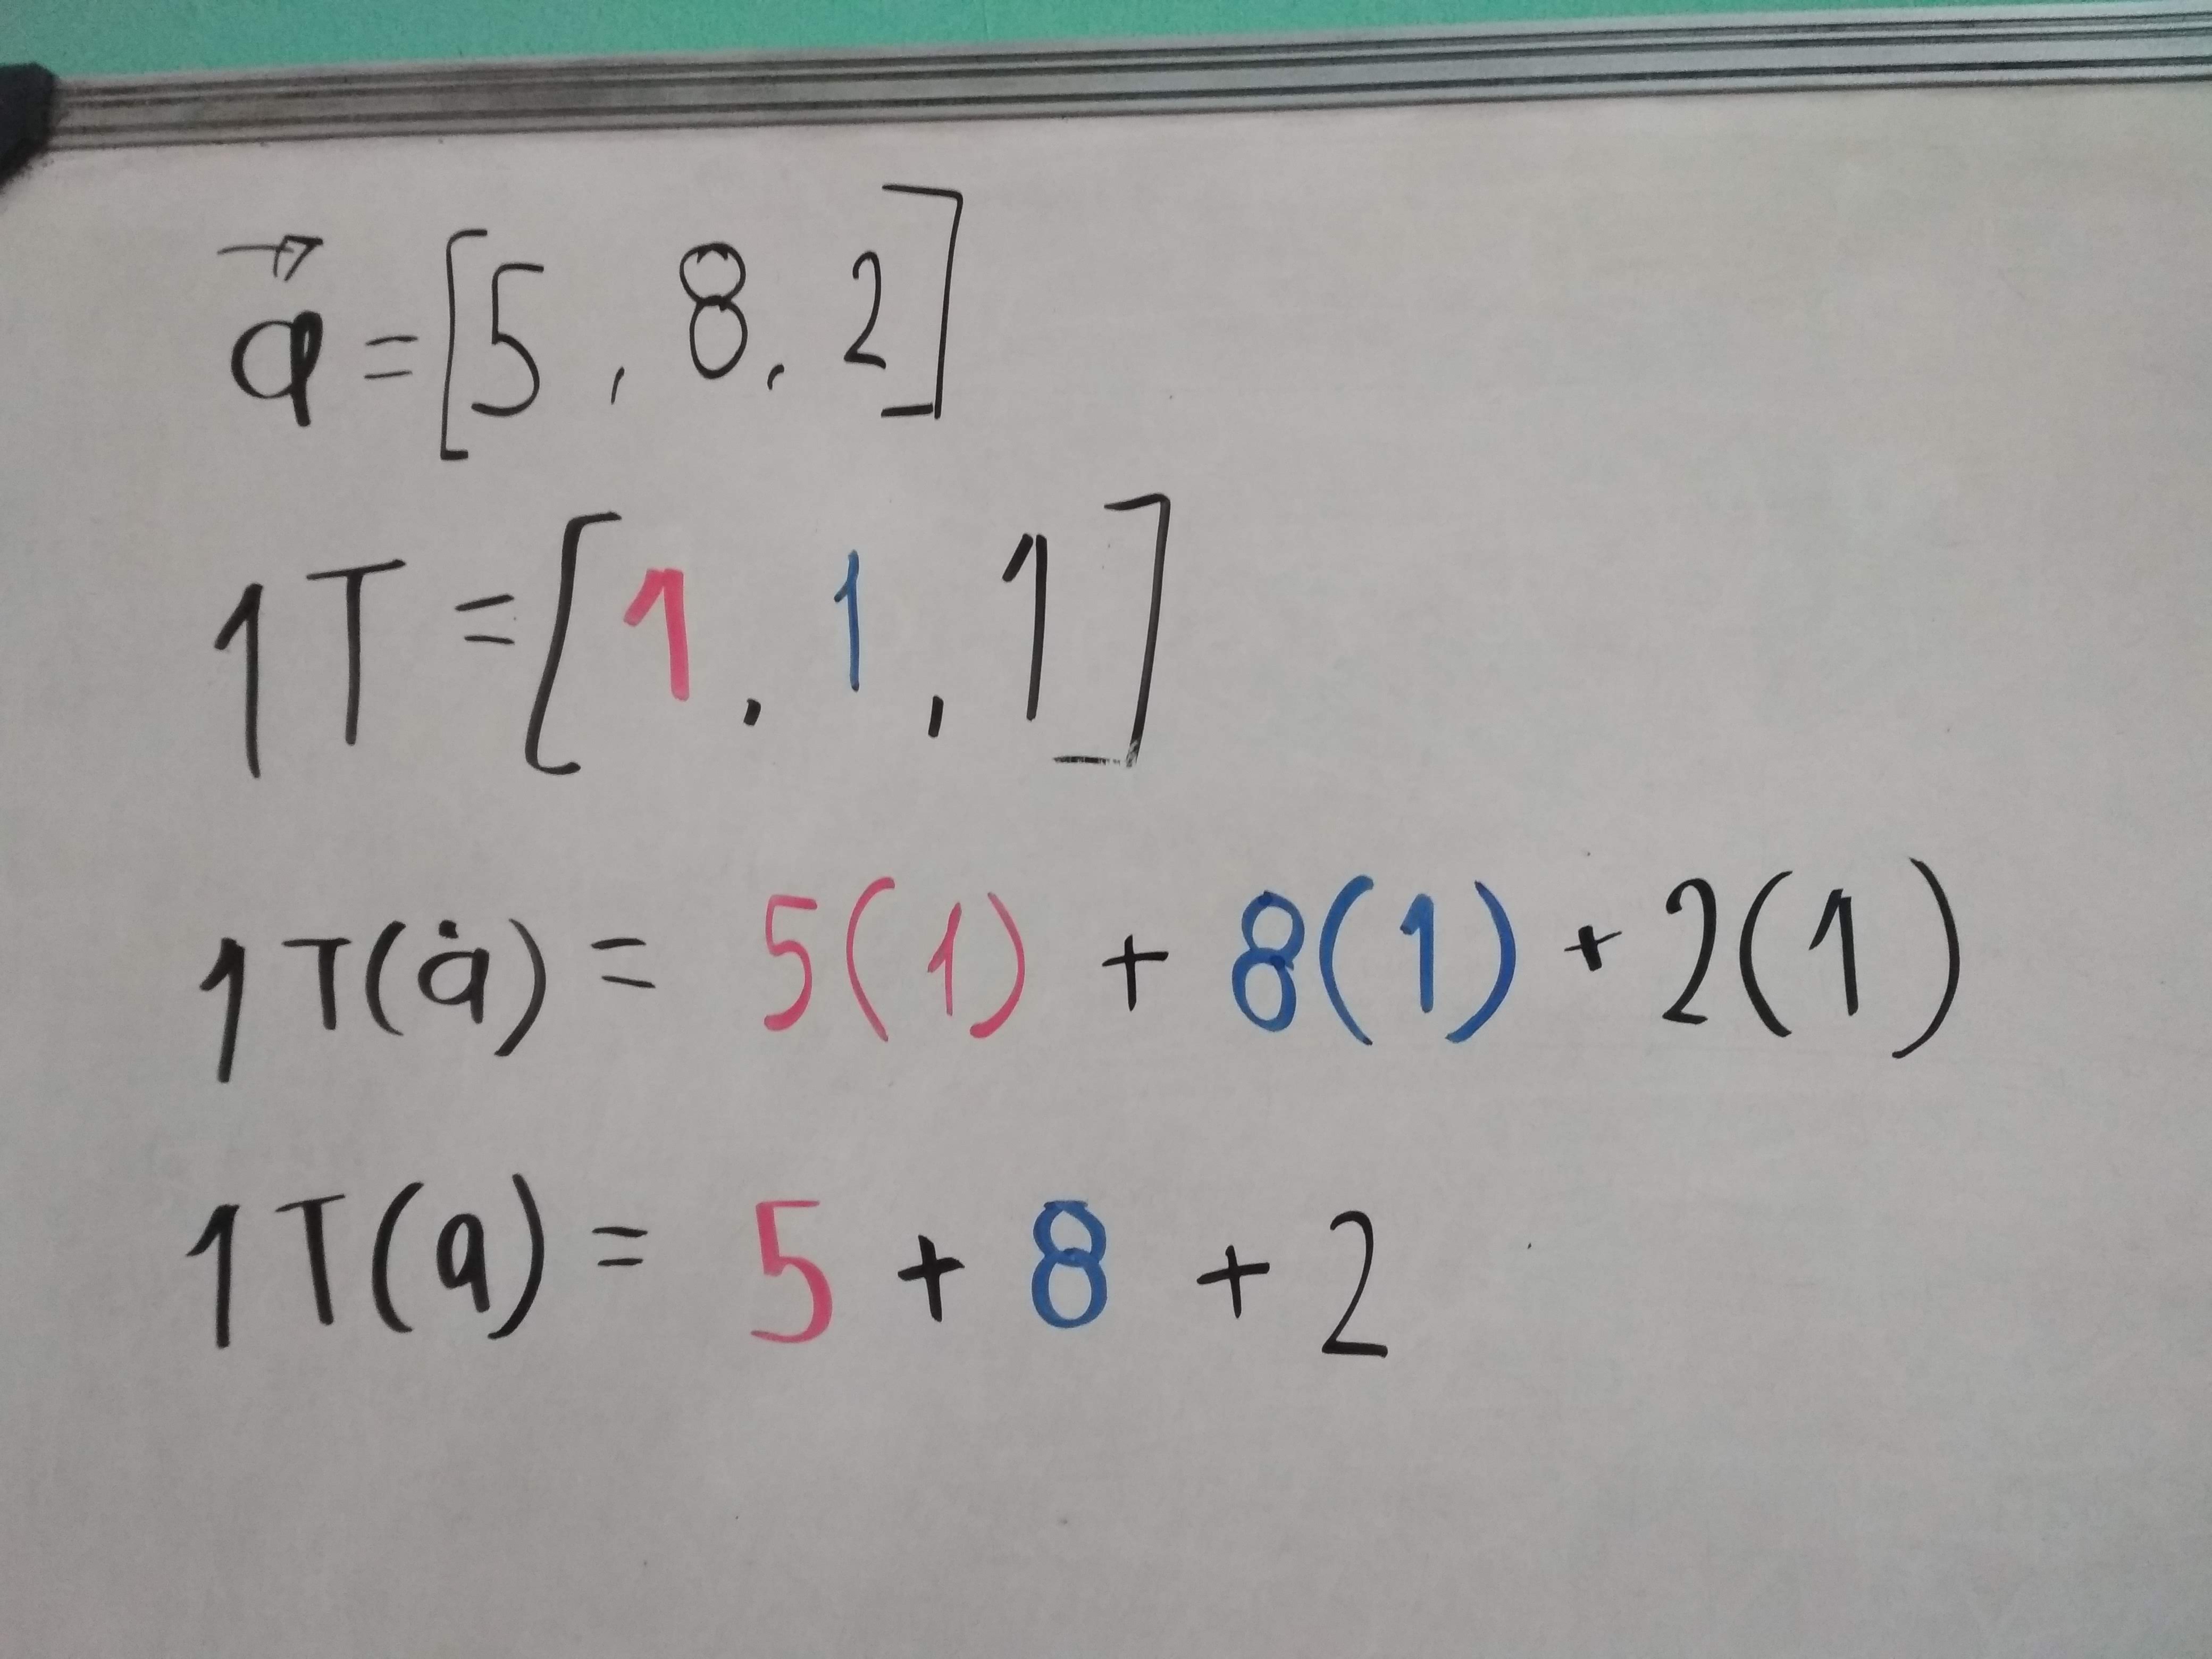 a⃗ = [5, 8, 2]
1T = [1, 1, 1]
1T(ȧ) = 5(1) + 8(1) + 2(1)
1T(a) = 5 + 8 + 2